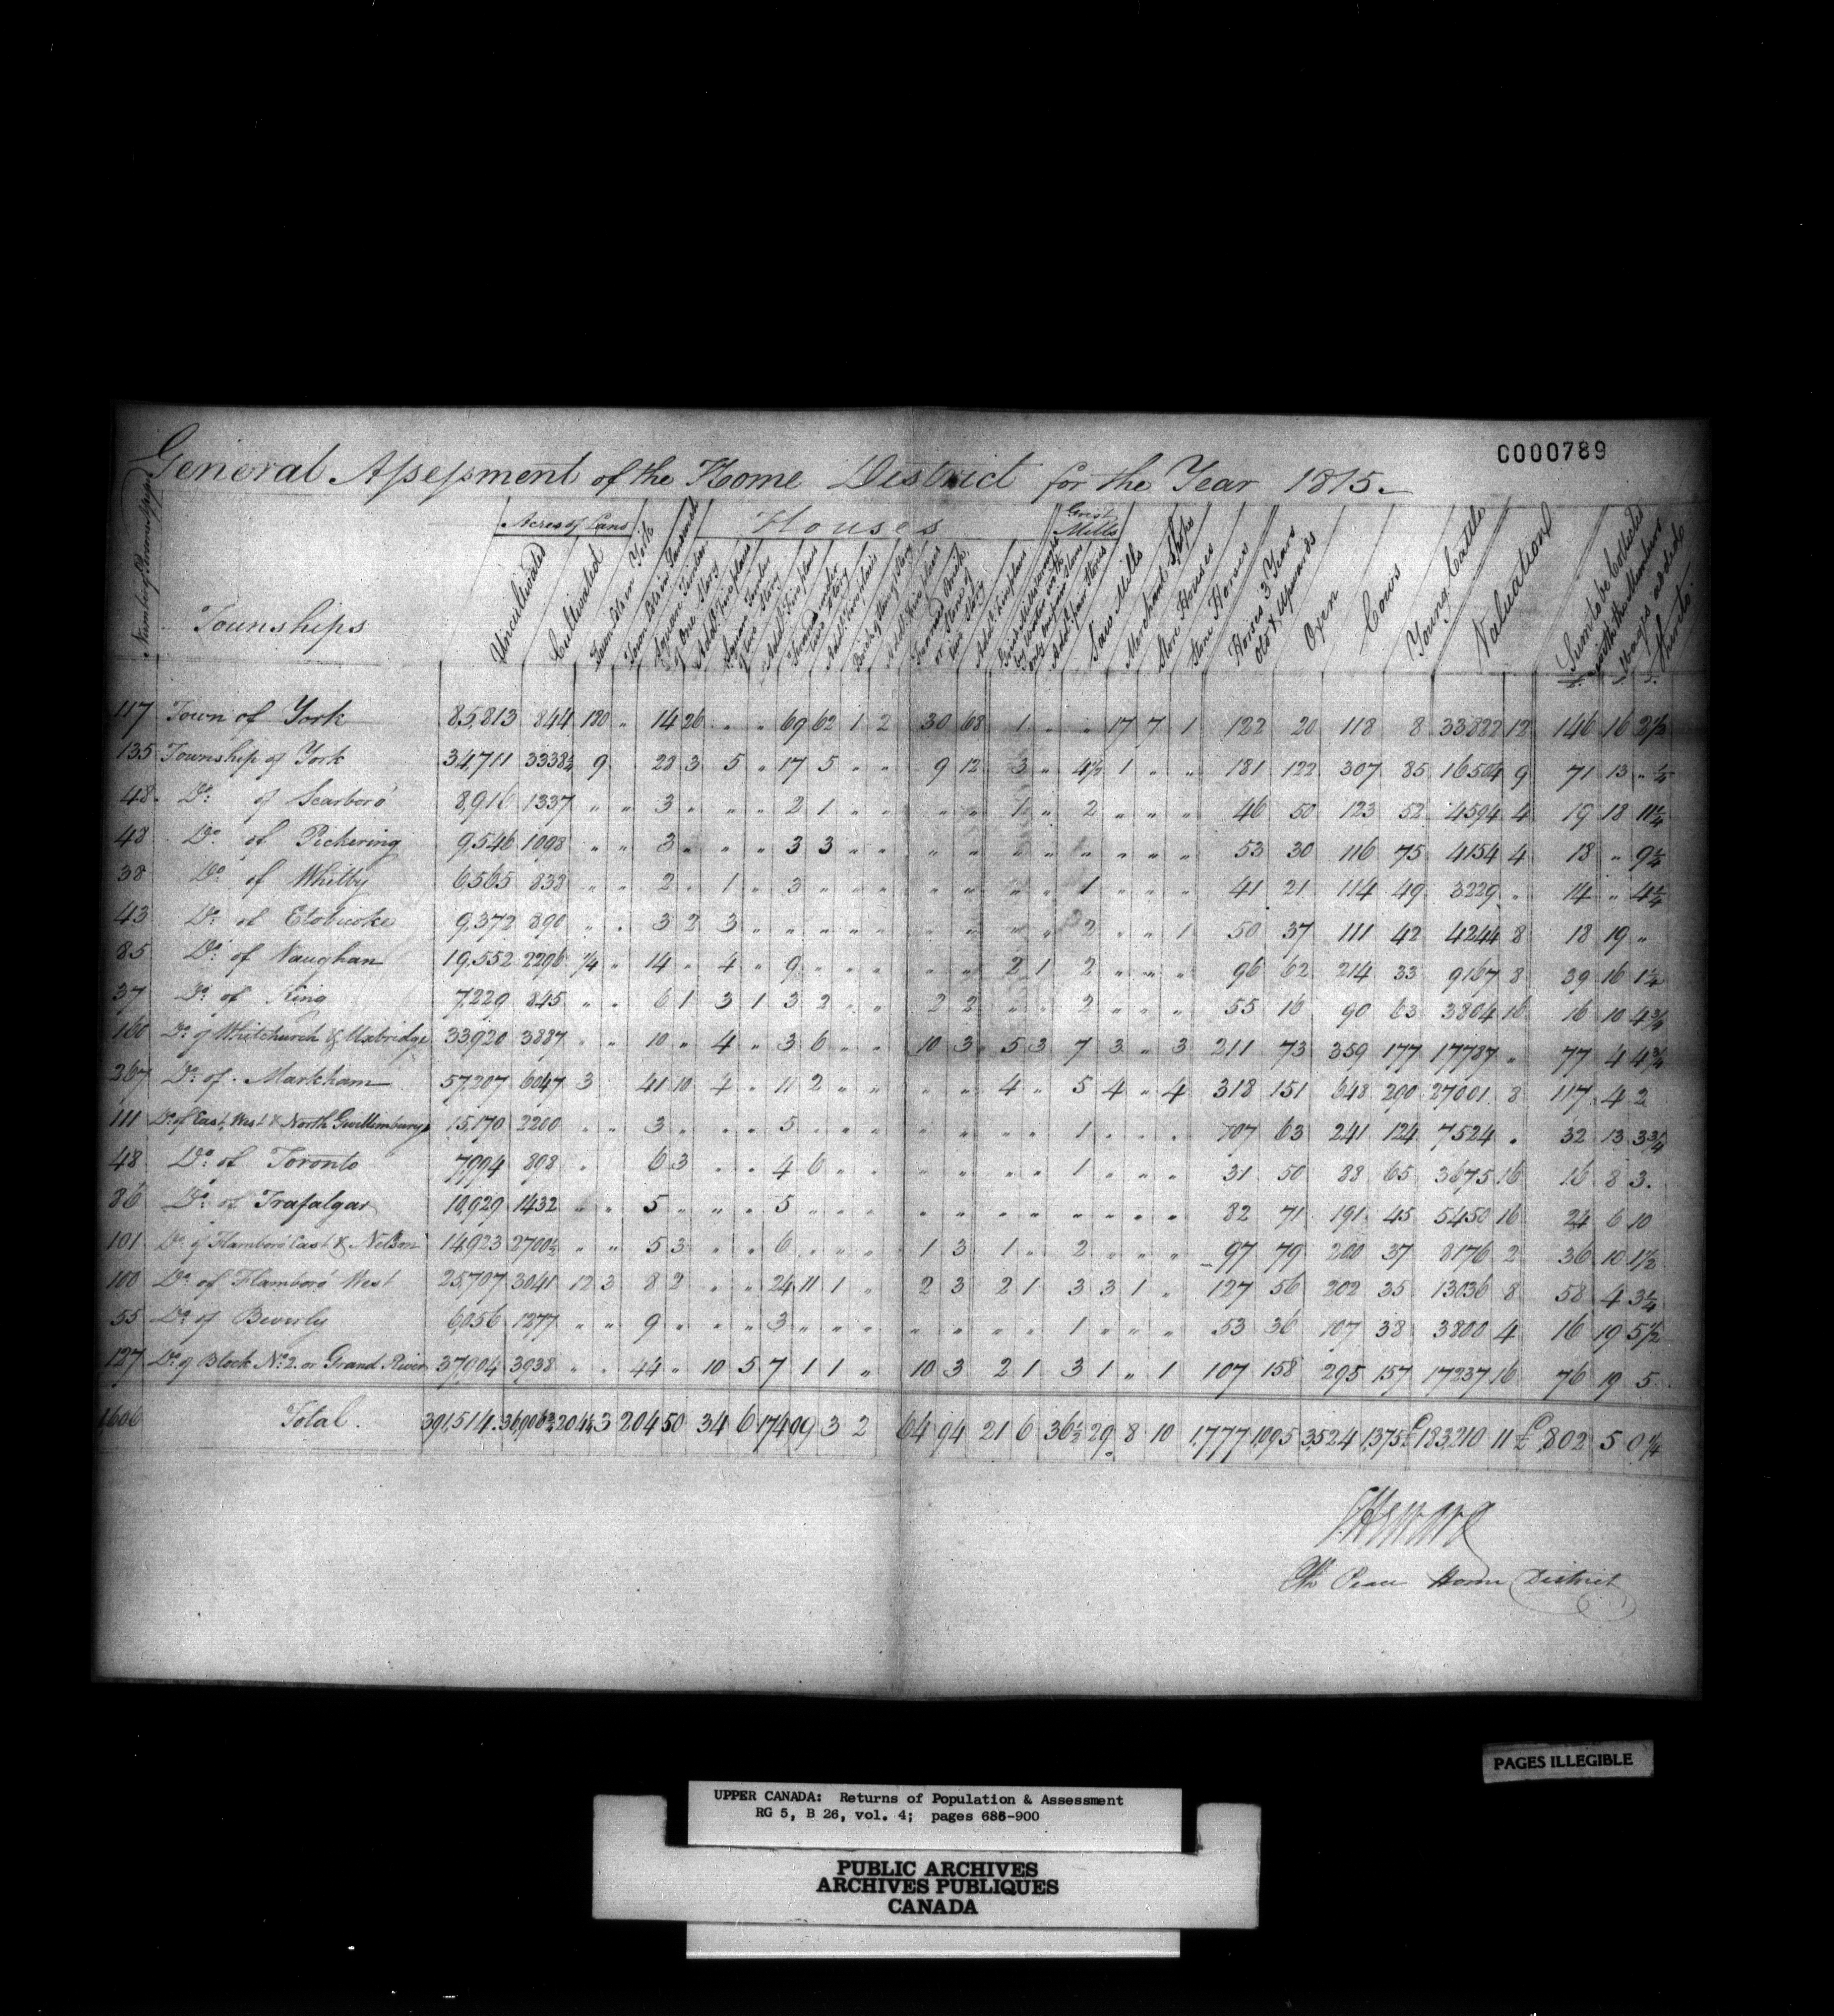 C000789
General Assessment of the Home District for the Year 1815.
Acres of Land Houses Grist Mills
Townships Uncultivated Cultivated Saw Mills Merchant Shops Store Houses Stone Horses Horses 3 Years Old & Upwards Oxen Cows Young Cattle Valuation
117 Town of York 85,813 844 180 " 14 26 " " " 69 62 1 2 30 68 1 " " 17 7 1 122 20 118 8 33822 12 146 16 2½
135 Township of York 34,711 3338½ 9 28 3 5 " 17 5 " " 9 12 3 " 4½ 1 " " 181 122 307 85 16504 9 71 13 " ¼
48 Do of Scarboro' 8,916 1337 " " 3 " " " 2 1 " " " " 1 " 2 " " " 46 50 123 52 4594 4 19 18 11¼
48 Do of Pickering 9,546 1098 " " 3 " " " 3 3 " " " " " " " " " " 53 30 116 75 4154 4 18 " 9¼
38 Do of Whitby 6,565 838 " " 2 " 1 " 3 " " " " " " " 1 " " " 41 21 114 49 3229 " 14 " 4¼
43 Do of Etobicoke 9,372 890 " " 3 2 3 " " " " " " " " " 2 " " 1 50 37 111 42 4244 8 18 19 "
85 Do of Vaughan 19,552 2296 ¼ " 14 " 4 " 9 " " " " " 2 1 2 " " " 96 62 214 33 9167 8 39 16 1¼
37 Do of King 7,229 845 " " 6 1 3 1 3 2 " " 2 2 " " 2 " " " 55 16 90 63 3804 16 16 10 4¾
160 Do of Whitchurch & Uxbridge 33920 3887 " " 10 " 4 " 3 6 " " 10 3 5 3 7 3 " 3 211 73 359 177 17787 " 77 4 4¾
267 Do of Markham 57,207 6047 3 41 10 4 " 11 2 " " " " 4 " 5 4 " 4 318 151 648 290 27001 8 117 4 2
111 Do of East, West & North Gwillimbury 15,170 2200 " " 3 " " " 5 " " " " " " " 1 " " " 107 63 241 124 7524 " 32 13 3¾
48 Do of Toronto 7,994 898 " 6 3 " " 4 6 " " " " " " 1 " " " 31 50 88 65 3675 16 16 8 3
86 Do of Trafalgar 10,929 1432 " " 5 " " " 5 " " " " " " " " " " " 82 71 191 45 5450 16 24 6 10
101 Do of Flamboro' East & Nelson 14,923 2700½ " " 5 3 " " 6 " " " 1 3 1 " 2 " " " 97 79 200 37 8176 2 36 10 1½
100 Do of Flamboro' West 25,707 3041 12 3 8 2 " " 24 11 1 " 2 3 2 1 3 3 1 " 127 56 202 35 13036 8 58 4 3¼
55 Do of Beverly 6,056 1277 " " 9 " " " 3 " " " " " " " 1 " " " 53 36 107 38 3800 4 16 19 5½
127 Do of Block No 2 or Grand River 37,904 3938 " " 44 " 10 5 7 1 1 " 10 3 2 1 3 1 " 1 107 158 295 157 17237 16 76 19 5
1606 Total. 391,514 36,906¾ 204¼ 3 204 50 34 6 174 99 3 2 64 94 21 6 36½ 29 8 10 1,777 1,095 3,524 1,375 £183,210 11 £802 5 0¼
Peace Home District
PAGES ILLEGIBLE
UPPER CANADA: Returns of Population & Assessment
RG 5, B 26, vol. 4; pages 686-900
PUBLIC ARCHIVES
ARCHIVES PUBLIQUES
CANADA